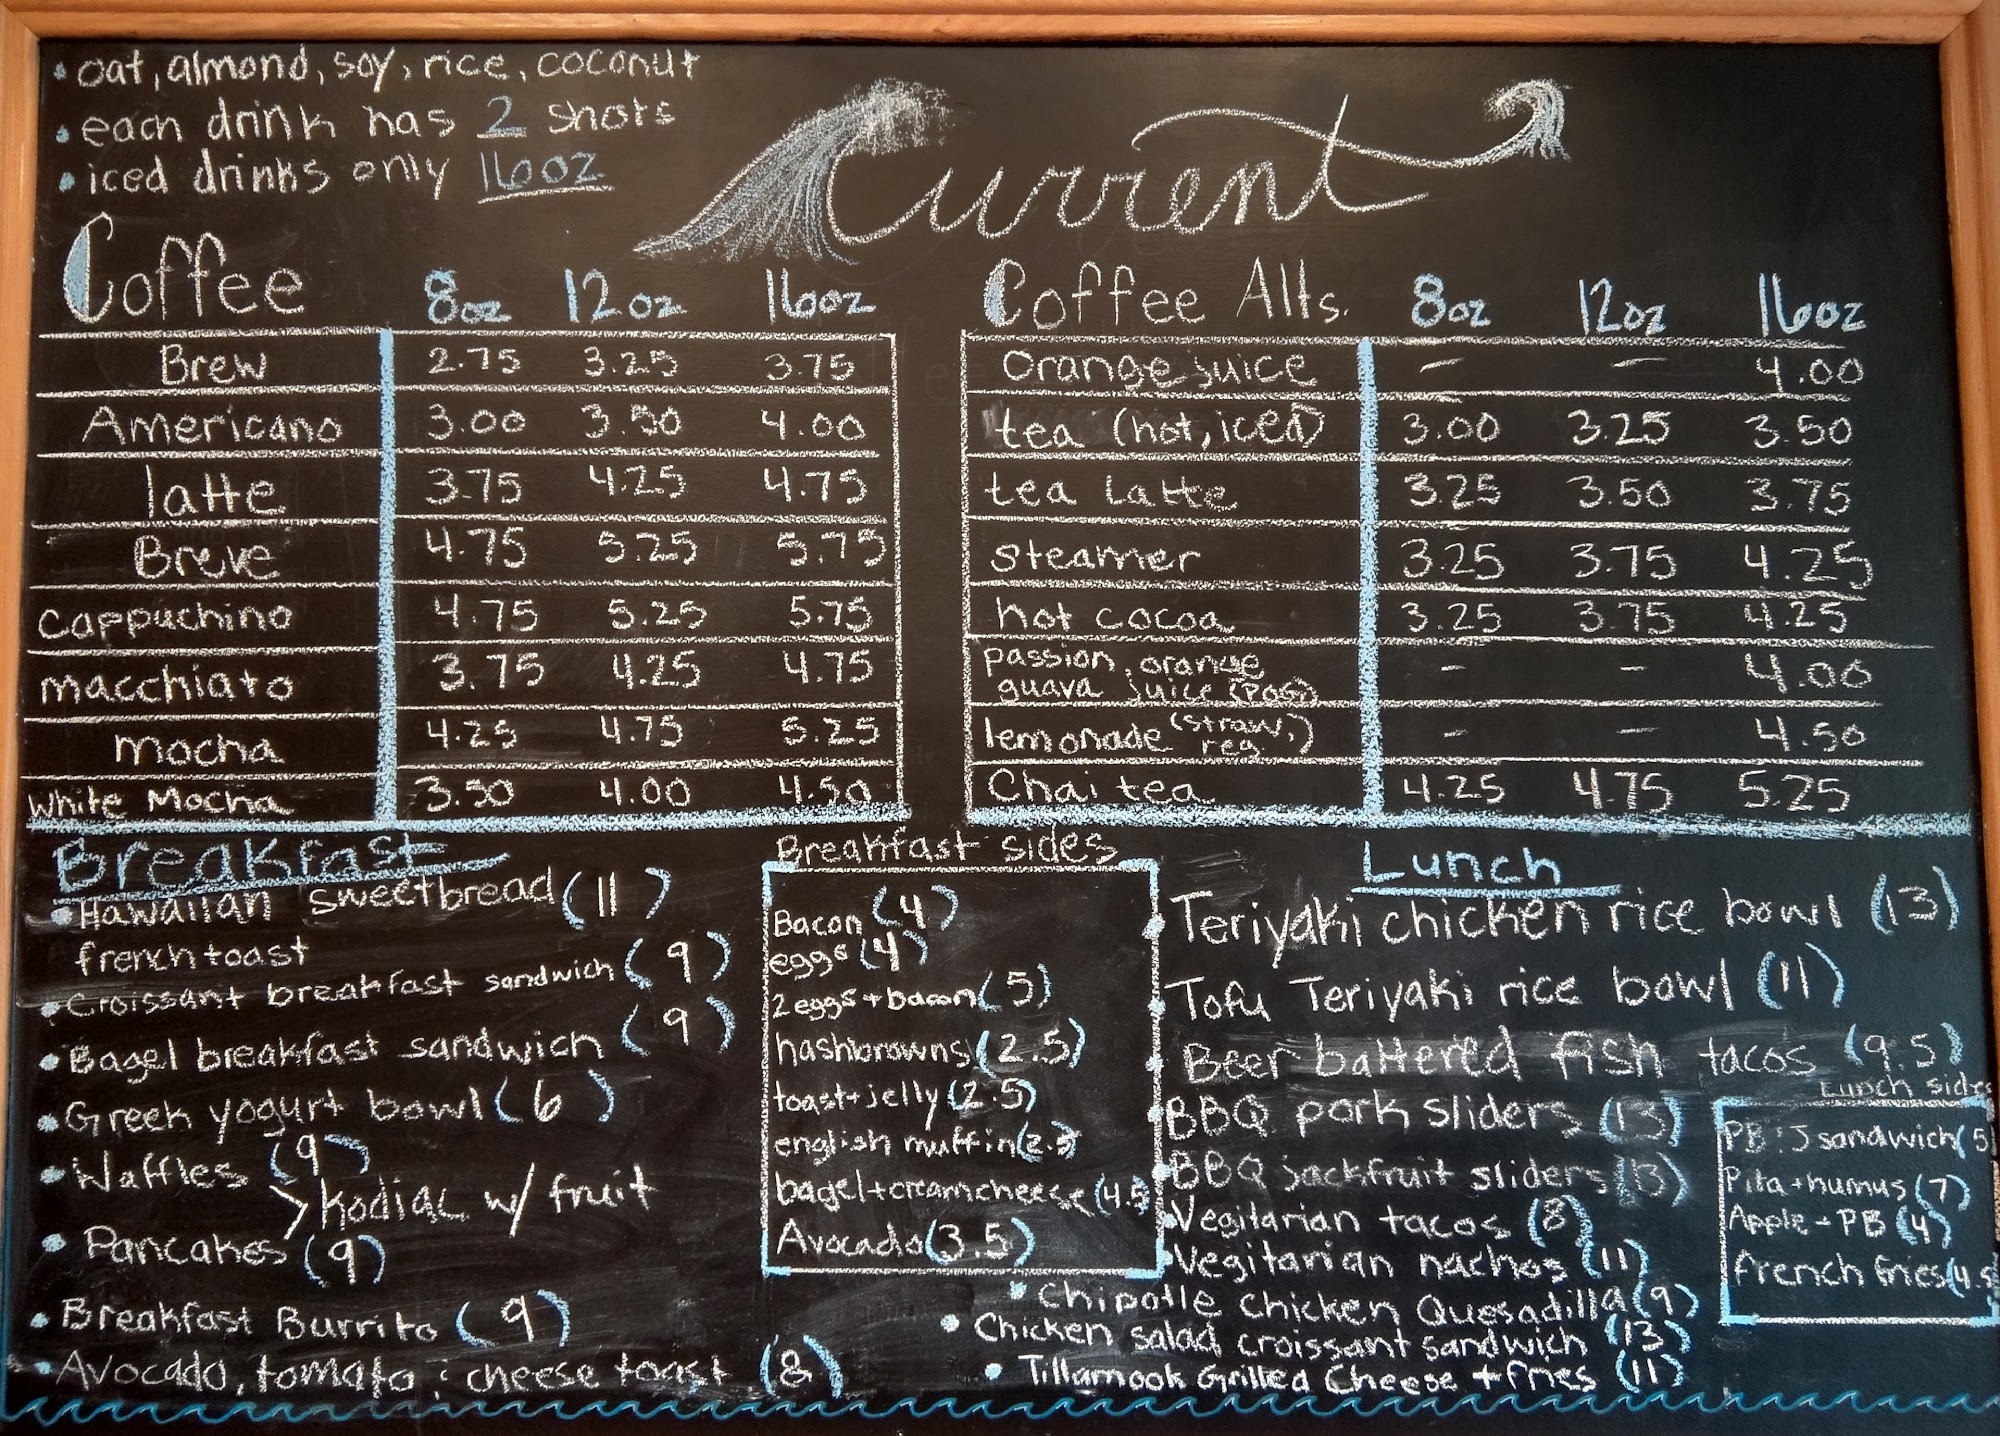 • oat, almond, soy, rice, coconut
• each drink has 2 shots
• iced drinks only 16oz
Current
Coffee 8oz 12oz 16oz
Brew 2.75 3.25 3.75
Americano 3.00 3.50 4.00
latte 3.75 4.25 4.75
Breve 4.75 5.25 5.75
cappuchino 4.75 5.25 5.75
macchiato 3.75 4.25 4.75
mocha 4.25 4.75 5.25
White Mocha 3.50 4.00 4.50
Coffee Alts. 8oz 12oz 16oz
orange juice - - 4.00
tea (hot, iced) 3.00 3.25 3.50
tea latte 3.25 3.50 3.75
steamer 3.25 3.75 4.25
hot cocoa 3.25 3.75 4.25
passion, orange
guava juice (POG) - - 4.00
lemonade (straw,
reg.) - - 4.50
Chai tea 4.25 4.75 5.25
Breakfast
• Hawaiian sweetbread (11)
french toast
• Croissant breakfast sandwich (9)
• Bagel breakfast sandwich (9)
• Greek yogurt bowl (6)
• Waffles (9)
> Kodiac w/ fruit
• Pancakes (9)
• Breakfast Burrito (9)
• Avocado, tomato ; cheese toast (8)
Breakfast sides
Bacon (4)
eggs (4)
2 eggs + bacon (5)
hashbrowns (2.5)
toast + jelly (2.5)
english muffin (2.5)
bagel + creamcheese (4.5)
Avocado (3.5)
Lunch
• Teriyaki chicken rice bowl (13)
• Tofu Teriyaki rice bowl (11)
• Beer battered fish tacos (9.5)
• BBQ pork sliders (13)
• BBQ jackfruit sliders (13)
• Vegitarian tacos (8)
• Vegitarian nachos (11)
• Chipotle Chicken Quesadilla (9)
• Chicken salad croissant sandwich (13)
• Tillamook Grilled Cheese + fries (11)
Lunch sides
PB ; J sandwich (5
Pita + humus (7)
Apple + PB (4)
french fries (4.5